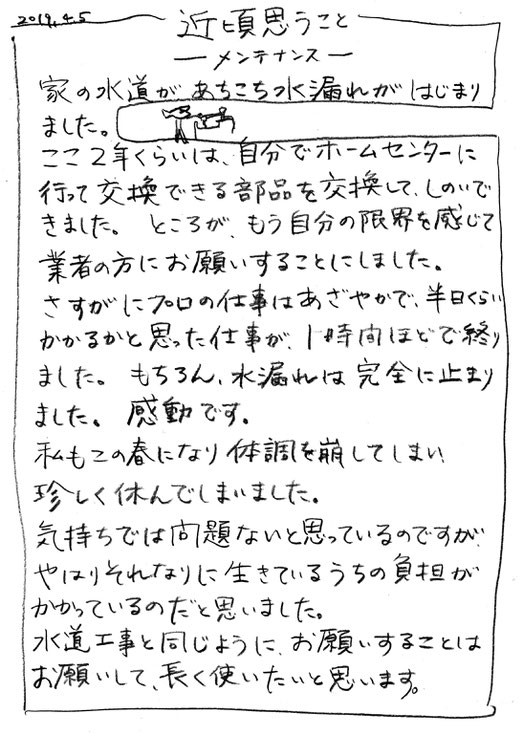 2019.4.5
近頃思うこと
ーメンテナンスー
家の水道があちこち水漏れがはじまり
ました。
ここ2年くらいは、自分でホームセンターに
行って交換できる部品を交換して、しのいで
きました。ところが、もう自分の限界を感じて
業者の方にお願いすることにしました。
さすがにプロの仕事はあざやかで、半日くらい
かかるかと思った仕事が、1時間ほどで終り
ました。もちろん、水漏れは完全に止まり
ました。感動です。
私もこの春になり体調を崩してしまい
珍しく休んでしまいました。
気持ちでは問題ないと思っているのですが、
やはりそれなりに生きているうちの負担が
かかっているのだと思いました。
水道工事と同じように、お願いすることは
お願いして、長く使いたいと思います。